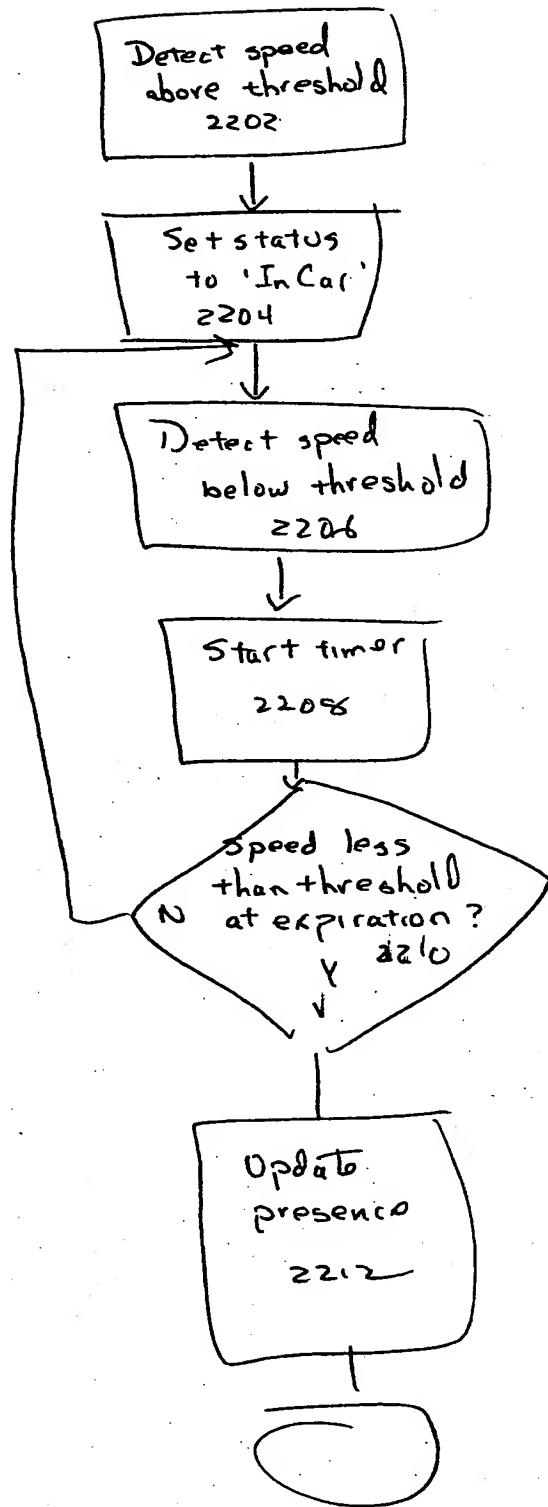 Detect speed
above threshold
2202
Set status
to 'In Car'
2204
Detect speed
below threshold
2206
Start timer
2208
Speed less
than threshold
N at expiration?
2210
Y
Update
presence
2212